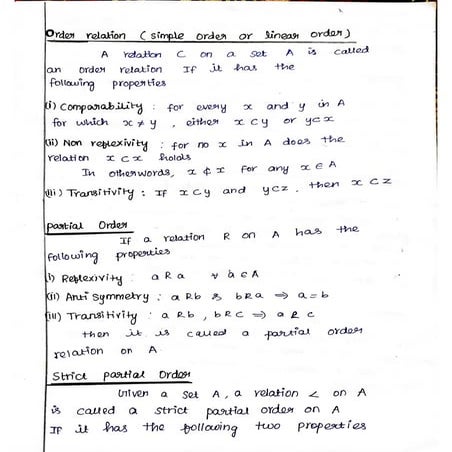 Order relation (simple order or linear order)
A relation C on a set A is called
an order relation If it has the
following properties
(i) Comparability : for every x and y in A
for which x ≠ y , either x C y or y C x
(ii) Non reflexivity : for no x in A does the
relation x C x holds
In otherwords, x ₵ x for any x ∈ A
(iii) Transitivity : If x C y and y C z , then x C z
Partial Order
If a relation R on A has the
following properties
i) Reflexivity : a R a ∀ a ∈ A
(ii) Anti Symmetry : a R b & b R a ⇒ a = b
(iii) Transitivity : a R b , b R C ⇒ a R c
then it is called a partial order
relation on A.
Strict partial Order
Given a set A, a relation < on A
is called a strict partial order on A
If it has the following two properties